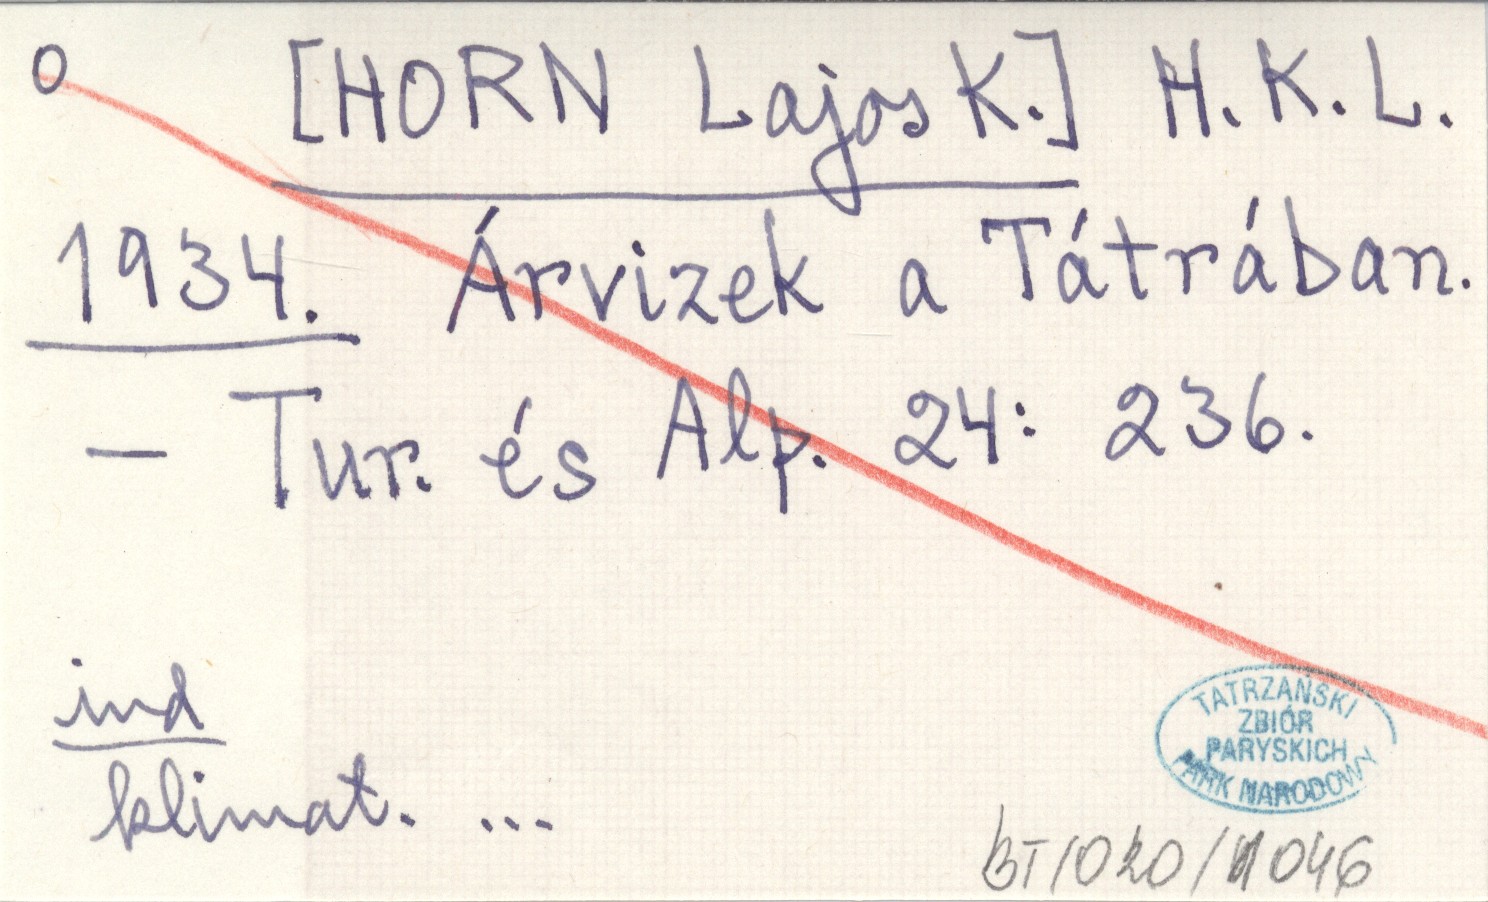 O [HORN Lajos K.] H. K. L.
1934. Árvizek a Tátrában.
— Tur. és Alp. 24: 236.
ind
klimat. ...
TATRZAŃSKI
ZBIÓR
PARYSKICH
PARK NARODOWY
BT/020/1046